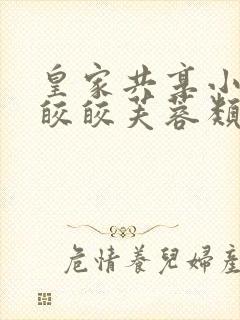 皇家共享小
皎皎芙蓉類
危情養兒婦產